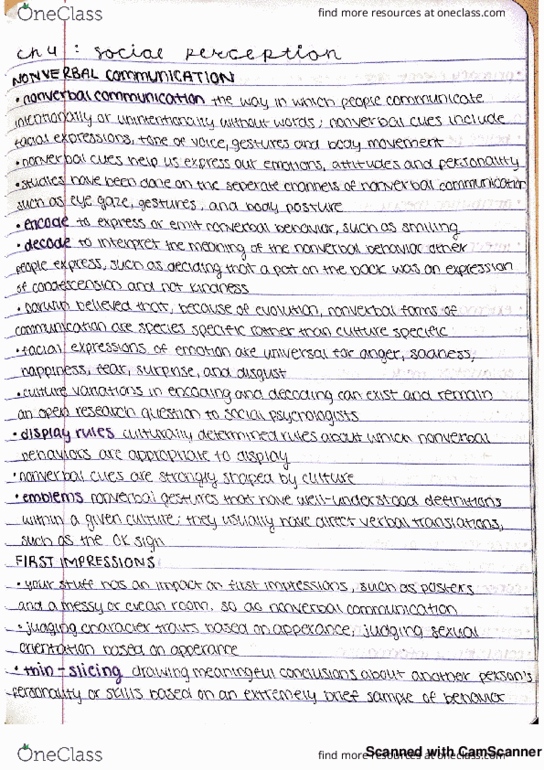 OneClass
find more resources at oneclass.com
ch 4 : social perception
NONVERBAL COMMUNICATION
• nonverbal communication the way in which people communicate
intentionally or unintentionally without words; nonverbal cues include
facial expressions, tone of voice, gestures and body movement
• nonverbal cues help us express out emotions, attitudes and personality
• studies have been done on the seperate channels of nonverbal communication
such as eye gaze, gestures, and body posture
• encode to express or emit nonverbal behavior, such as smiling
• decode to interpret the meaning of the nonverbal behavior other
people express, such as deciding that a pat on the back was an expression
of condescension and not kindness
• Darwin believed that, because of evolution, nonverbal forms of
communication are species specific rather than culture specific
• facial expressions of emotion are universal for anger, sadness,
happiness, fear, surprise, and disgust
• culture variations in encoding and decoding can exist and remain
an open research question to social psychologists
• display rules culturally determined rules about which nonverbal
behaviors are appropriate to display
• nonverbal cues are strongly shaped by culture
• emblems nonverbal gestures that have well-understood definitions
within a given culture; they usually have direct verbal translations,
such as the OK sign
FIRST IMPRESSIONS
• your stuff has an impact on first impressions, such as posters
and a messy or clean room, so do nonverbal communication
• judging character traits based on apperance, judging sexual
orientation based on apperance
• thin-slicing drawing meaningful conclusions about another person's
personality or skills based on an extremely brief sample of behavior
OneClass
find more resources at oneclass.com
Scanned with CamScanner